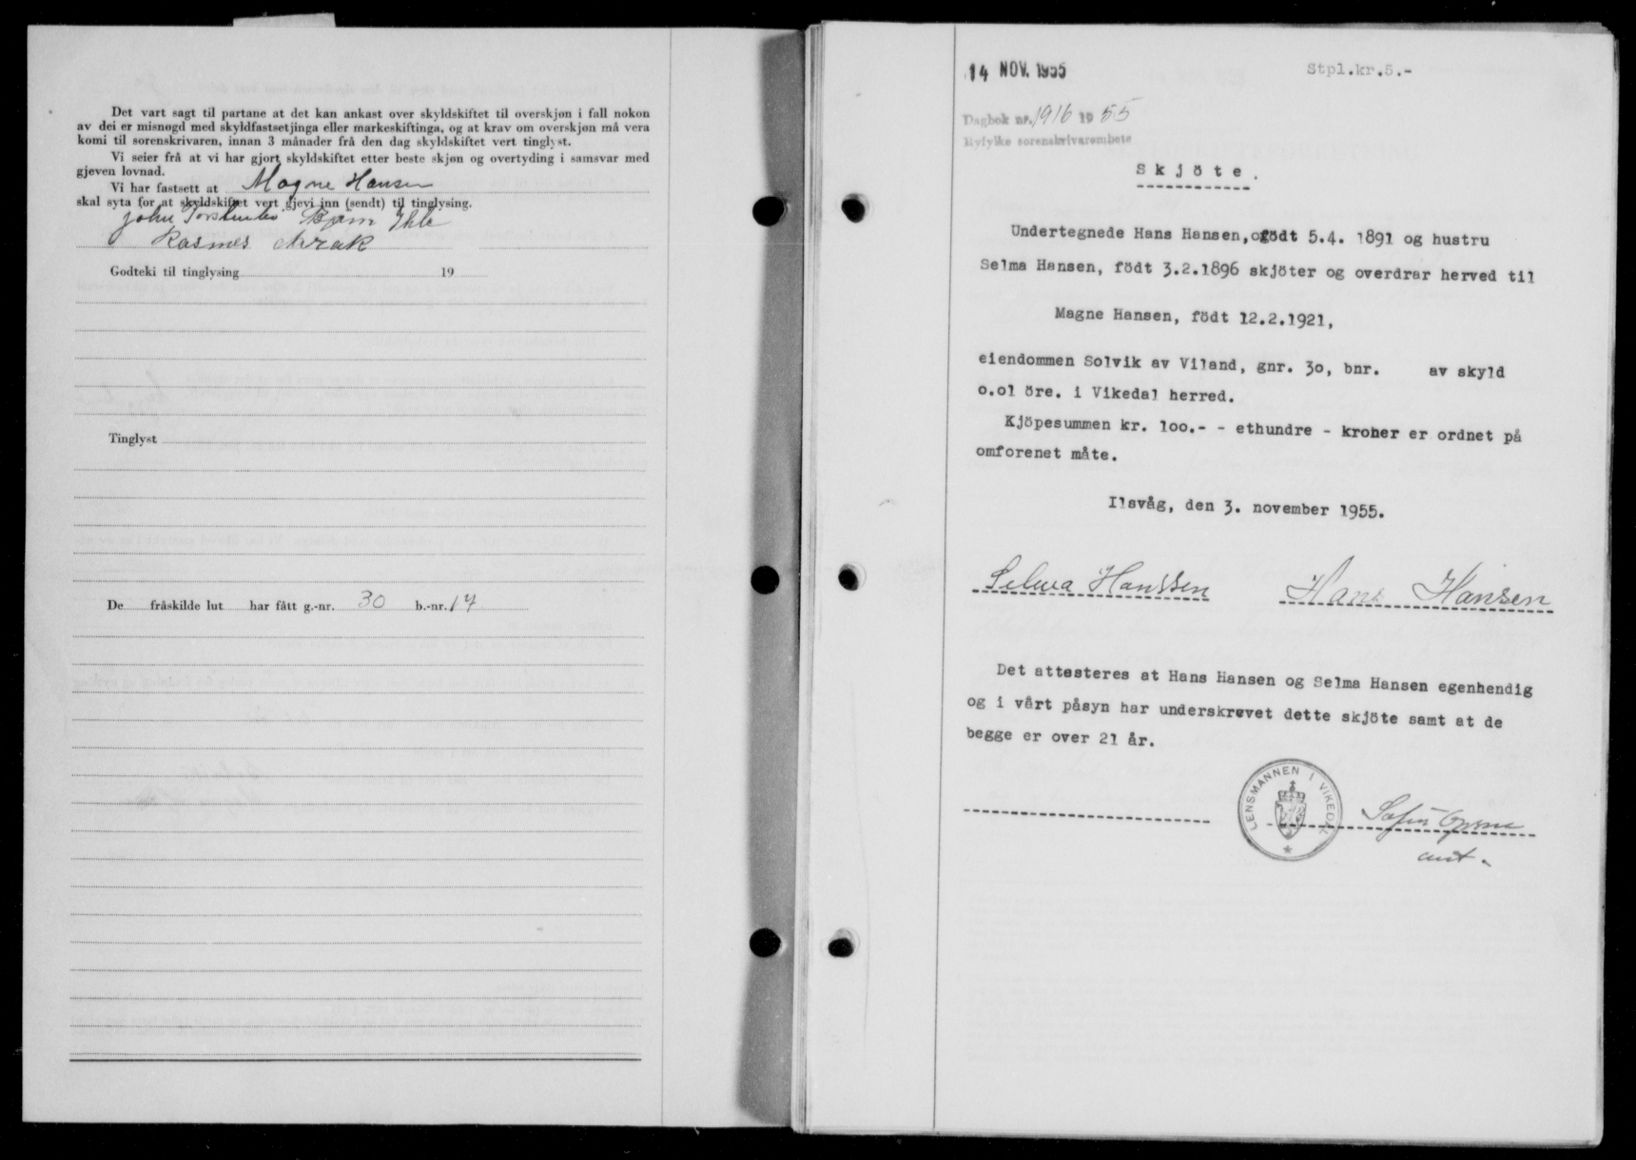 Det vart sagt til partane at det kan ankast over skyldskiftet til overskjøn i fall nokon
av dei er misnøgd med skyldfastsetjinga eller markeskiftinga, og at krav om overskjøn må vera
komi til sorenskrivaren, innan 3 månader frå den dag skyldskiftet vert tinglyst.
Vi seier frå at vi har gjort skyldskiftet etter beste skjøn og overtyding i samsvar med
gjeven lovnad.
Vi har fastsett at Magne Hansen
skal syta for at skyldskiftet vert gjevi inn (sendt) til tinglysing.
John Bjørn
Rasmus
Godteki til tinglysing 19
Tinglyst
De fråskilde lut har fått g.-nr. 30 b.-nr. 17
14 NOV. 1955
Stpl.kr.5.-
Dagbok nr. 1916 19 55
Ryfylke sorenskrivarembete
Skjöte.
Undertegnede Hans Hansen, födt 5.4. 1891 og hustru
Selma Hansen, födt 3.2.1896 skjöter og overdrar herved til
Magne Hansen, födt 12.2.1921,
eiendommen Solvik av Viland, gnr. 3o, bnr. av skyld
o.o1 öre. i Vikedal herred.
Kjöpesummen kr. 1oo.- - ethundre - kroner er ordnet på
omforenet måte.
Ilsvåg, den 3. november 1955.
Selma Hanssen Hans Hansen
Det attesteres at Hans Hansen og Selma Hansen egenhendig
og i vårt påsyn har underskrevet dette skjöte samt at de
begge er over 21 år.
LENSMANNEN I VIKEDAL